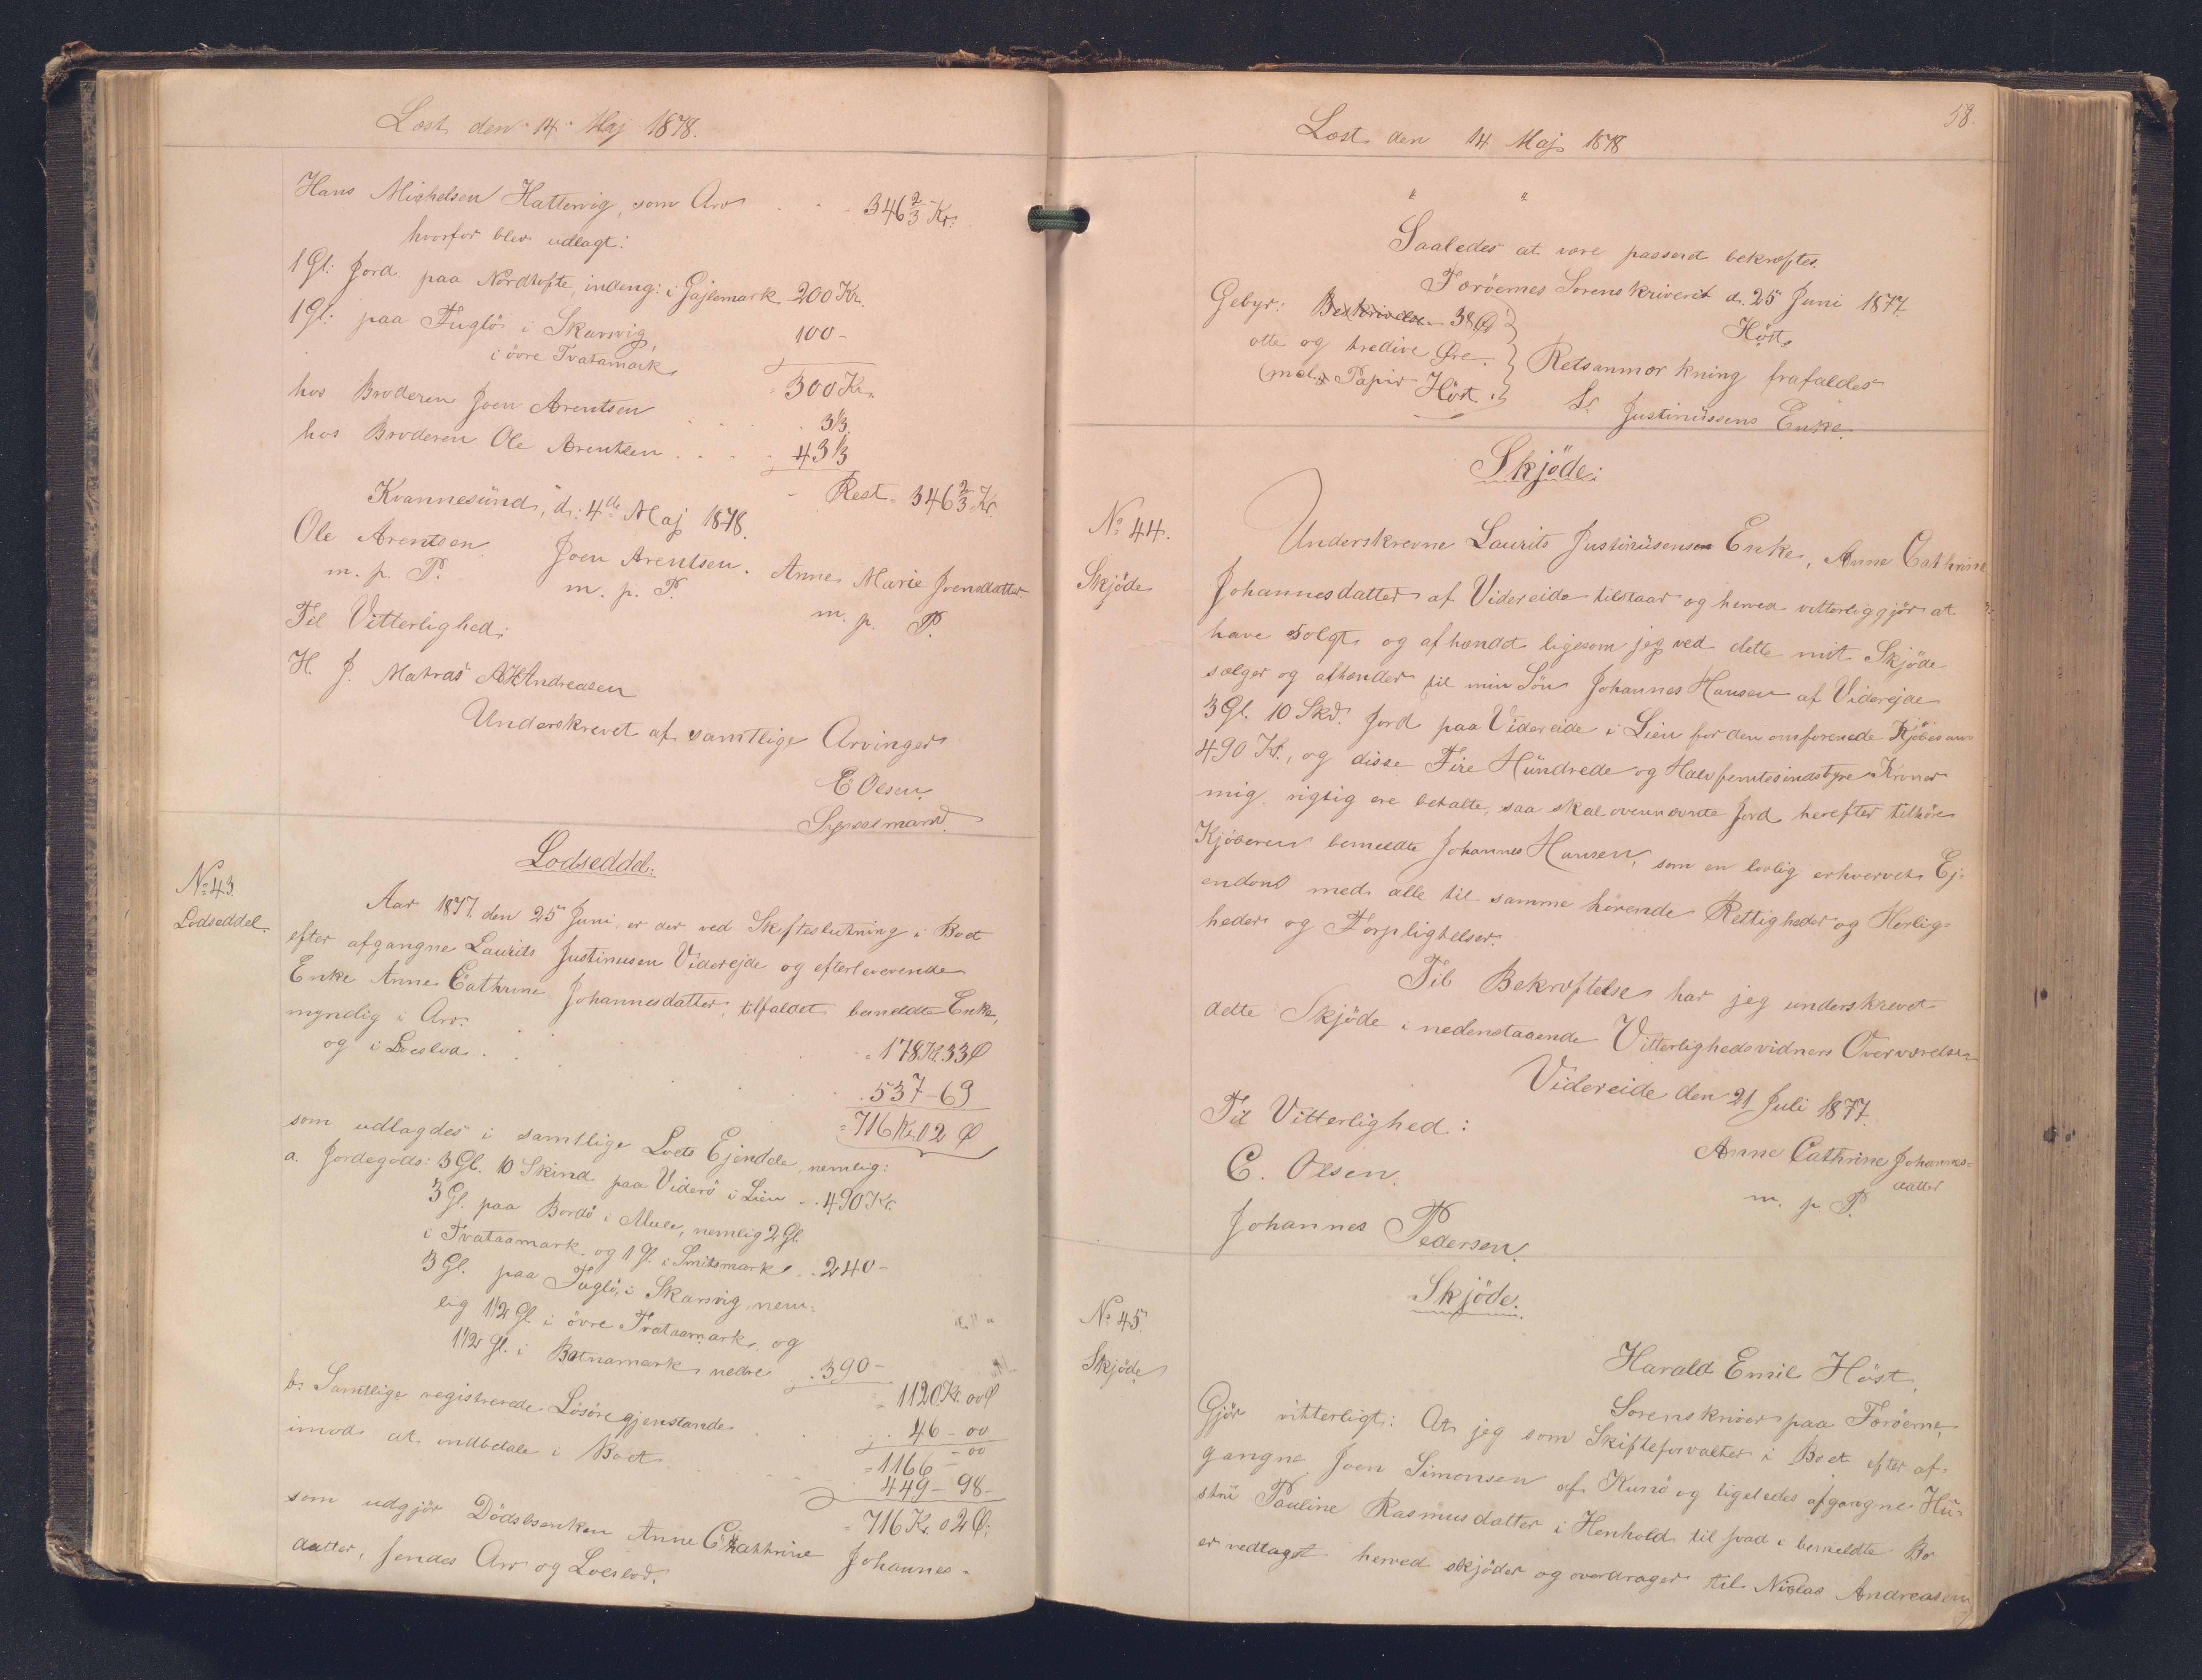 Læst den 14 Maj 1878.
Hans Michelsen Hattervig, som Arv 346 2/3 Kr.
hvorfor blev udlagt:
1 Gl: Jord paa Nordtofte, indeng: i Gajlsmark 200 Kr.
1 Gl: paa Fuglö i Skarvig,
i övre Tvatamark 100 -
= 300 Kr.
hos Broderen Joen Arentsen . . . 3 1/3.
hos Broderen Ole Arentsen . . . . 43 1/3
Rest = 346 2/3 Kr.
Kvannesund, d: 4de Maj 1878.
Ole Arentsen. Joen Arentsen. Anne Marie Joensdatter
m. p. P. m. p. P. m. p. P.
Til Vitterlighed:
H. J. Matras A H Andreasen
Underskrevet af samtlige Arvinger
E Olsen.
Sysselmand.
Lodseddel:
No 43.
Lodseddel.
Aar 1877 den 25 Juni er der ved Skifteslutning i Boet
efter afgangne Laurits Justinusen Viderejde og efterlevende
Enke Anne Cathrine Johannesdatter, tilfaldet bemeldte Enke,
myndig i Arv.
= 178 Kr. 33 Ø
og i Boeslod . . . 537 - 69
= 716 Kr. 02 Ø
som udlagdes i samtlige Boets Ejendele, nemlig:
a. Jordegods: 3 Gl. 10 Skind paa Viderö i Lien . . 490 Kr.
3 Gl. paa Bordö i Mule, nemlig 2 Gl.
i Tvataamark og 1 Gl. i Smitsmark . . 240 -
3 Gl. paa Fuglö, i Skarvig, nem-
lig 1 1/2 Gl. i övre Tvataamark, og
1 1/2 Gl. i Botnamark nedre . 390 -
= 1120 Kr. 00 Ø
b: Samtlige registrerede Lösöregjenstande . . 46 - 00
= 1166 - 00
imod at indbetale i Boet . . . 449 - 98 -
= 716 Kr. 02 Ø:
som udgjör Dödsbsenken Anne Cathrine Johannes-
datter, hendes Arv og Boeslod.
58.
Læst den 14 Maj 1878
" "
Saaledes at være passeret bekræftes.
Færöernes Sorenskriveri d. 25 Juni 1877.
Höst
Gebyr: Beskrivelse 38 Ø
otte og tredive Øre.
(incl. Papir Höst.
Retsanmærkning frafaldes
L. Justinussens Enke.
Skjöde:
No 44.
Skjöde
Underskrevne Laurits Justinusensen Enke, Anne Cathrine
Johannesdatter af Videreide tilstaar og herved vitterliggjör at
have solgt og afhændt ligesom jeg ved dette mit Skjöde
sælger og afhænder til min Sön Johannes Hansen af Viderejde
3 Gl. 10 Skd. Jord paa Videreide i Lien for den omforenede Kjöbesum
490 Kr., og disse Fire Hundrede og Halvfemtesindstyve Kroner
mig rigtig ere betalte, saa skal ovennævnte Jord herefter tilhöre
Kjöberen bemeldte Johannes Hansen, som en lovlig erhvervet Ej-
endom med alle til samme hörende Rettigheder og Herlig-
heder og Forpligtelser.
Til Bekræftelse har jeg underskrevet
dette Skjöde i nedenstaaende Vitterlighedsvidners Overværelse
Videreide den 21 Juli 1877.
Til Vitterlighed:
Anne Cathrine Johannes-
datter
C. Olsen.
m. p. P.
Johannes Pedersen.
Skjöde.
No 45.
Skjöde
Harald Emil Höst,
Sorenskriver paa Færöerne,
Gjör vitterligt: At jeg som Skifteforvalter i Boet efter af-
gangne Joen Simonsen af Kunö og ligeledes afgangne Hu-
stru Pauline Rasmusdatter i Henhold til hvad i bemeldte Bo
er vedtaget herved skjöder og overdrager til Niclas Andreasen